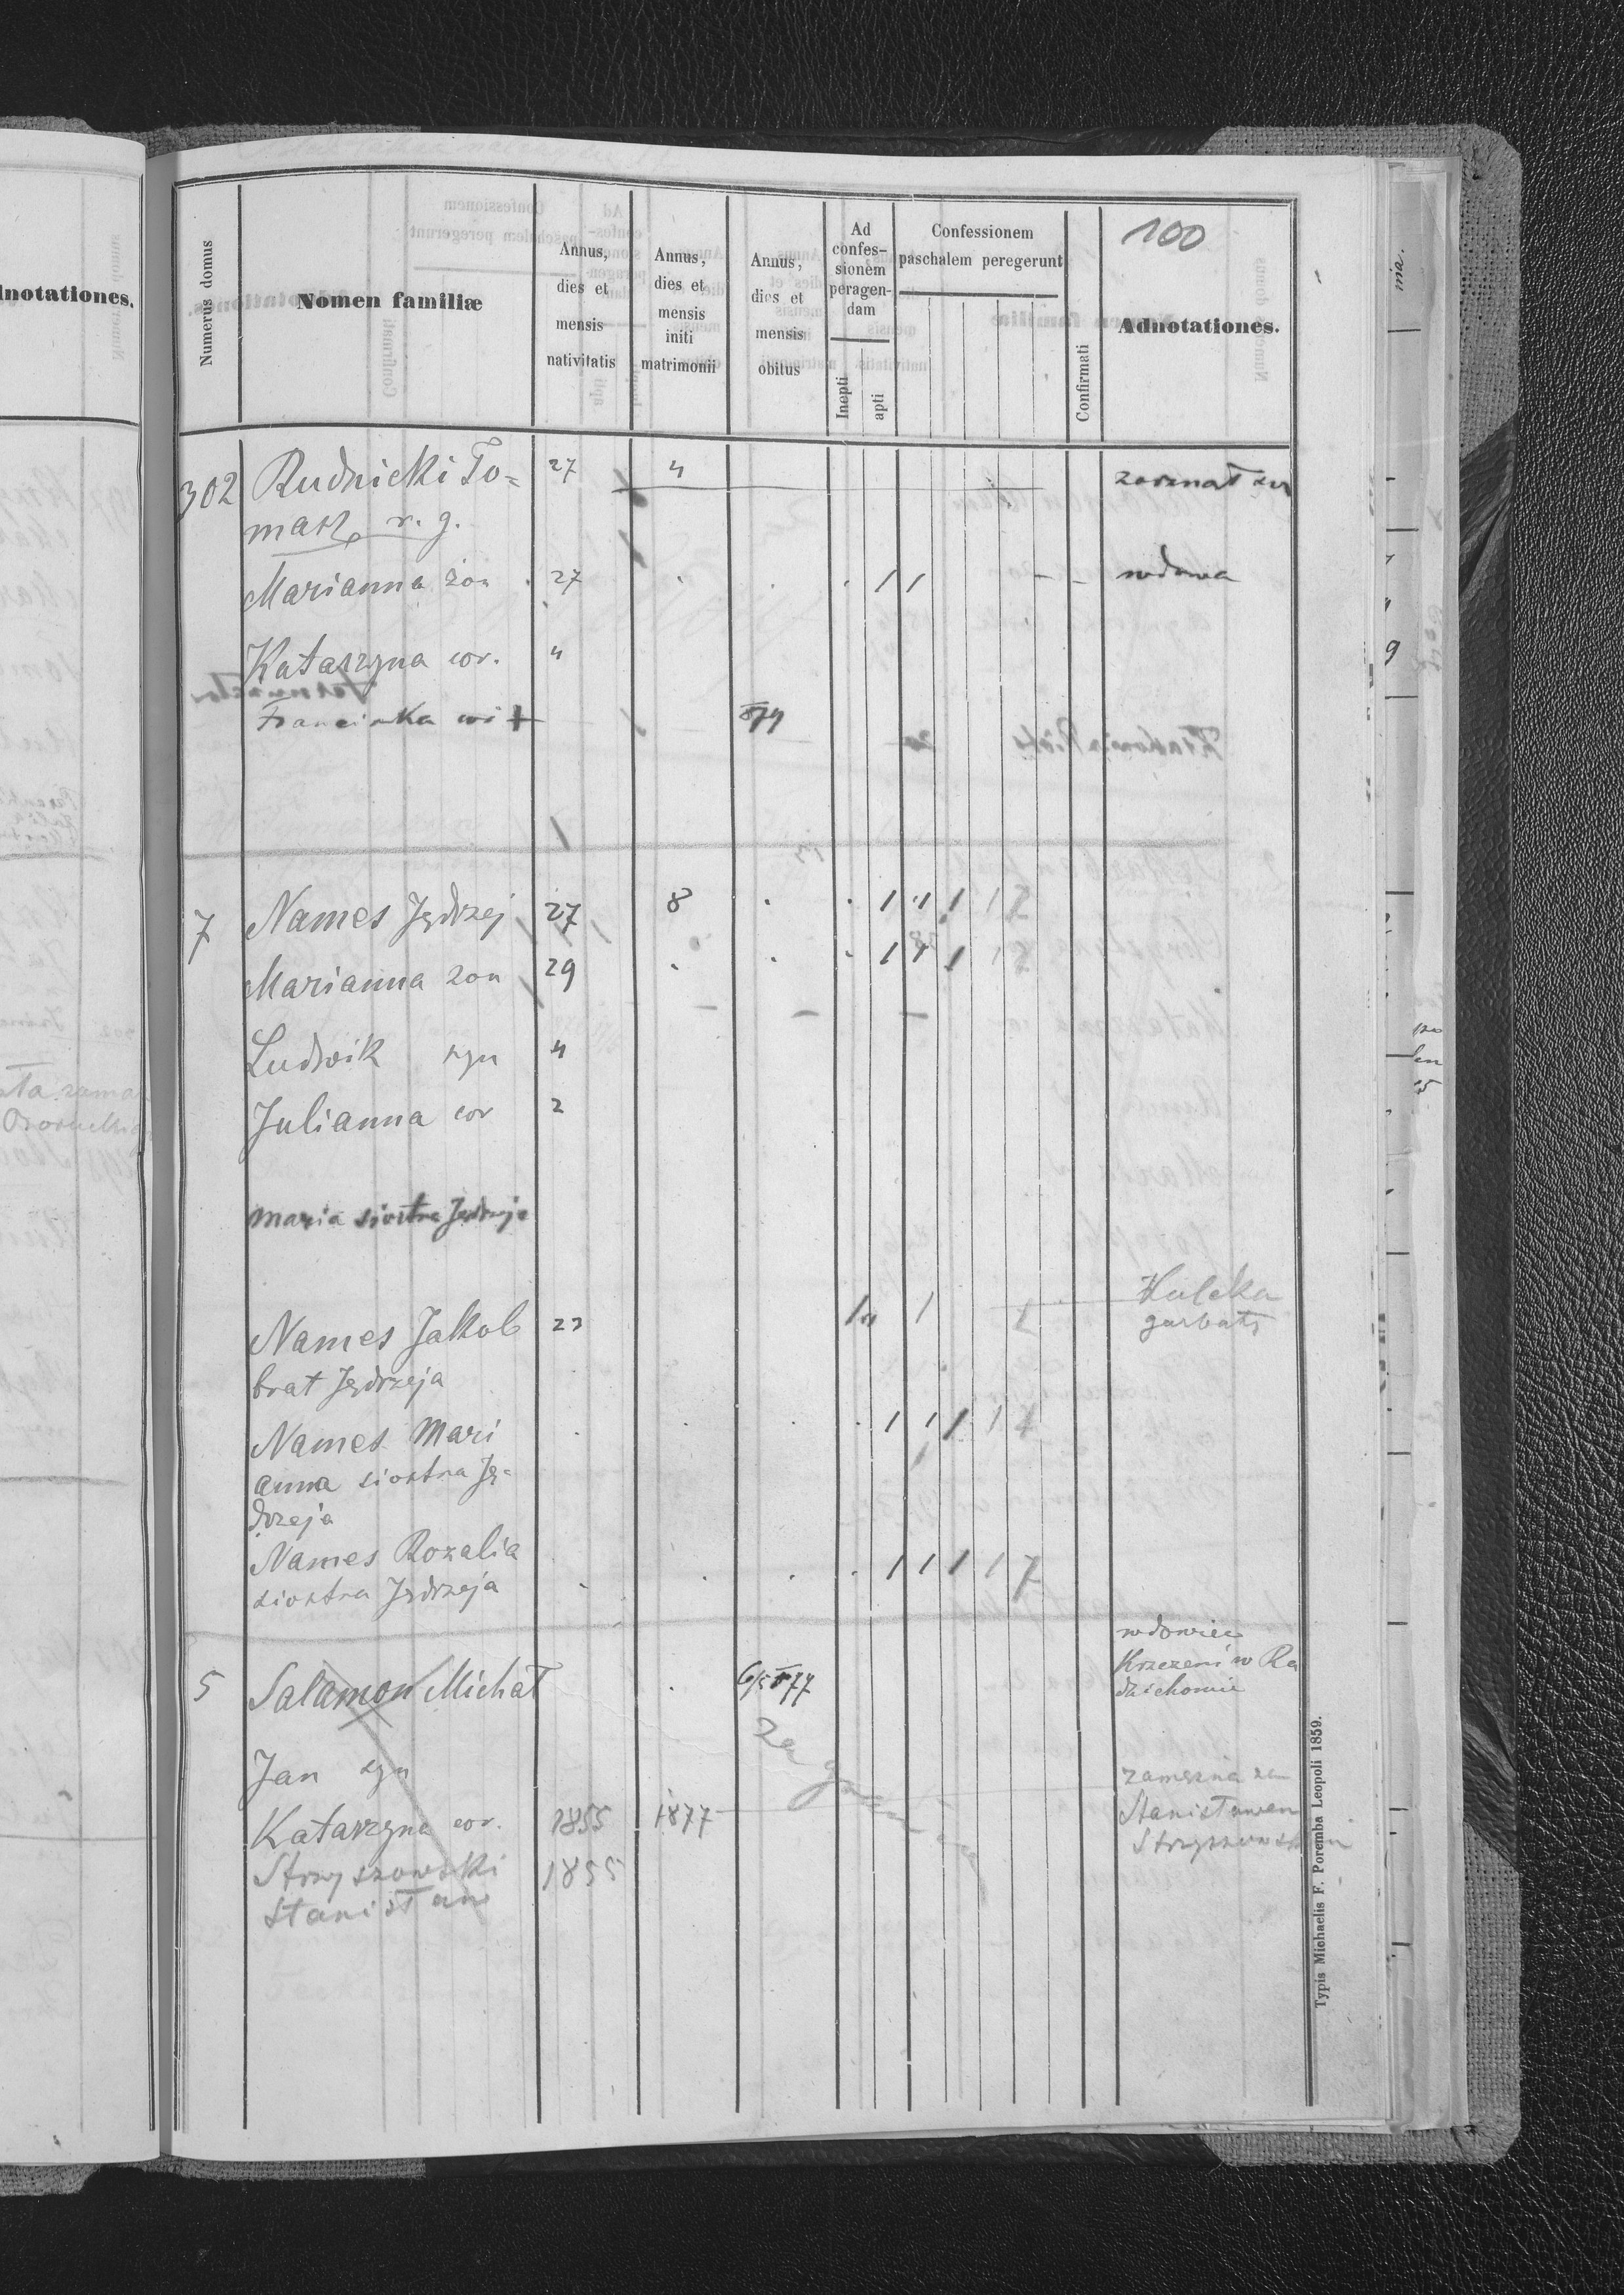 100
Numerus domus
Nomen familiæ
Annus,
dies et
mensis
nativitatis
Annus,
dies et
mensis
initi
matrimonii
Annus,
dies et
mensis
obitus
Ad
confes-
sionem
peragen-
dam
Inepti
apti
Confessionem
paschalem peregerunt
Confirmati
Adnotationes.
dnotationes.
302 Rudnicki To= 27 4
masz r. g.
Marianna żon 27 1 1 wdowa
Katarzyna cor. 4
Franciszka cor + 874
7 Names Jędrzej 27 8 1 1 1 1
Marianna żon 29 1 1 1 1
Ludwik syn 4
Julianna cor 2
Maria siostra Jędrzeja
Names Jakob 23 1
brat Jędrzeja
garbaty
Names Mari 1 1 1 1
anna siostra Ję-
drzeja
Names Rozalia 1 1 1 1
siostra Jędrzeja
wdowiec
5 Salamon Michał 6/5 877
Jan syn
zamężna za
Katarzyna cor. 1855 1877 Stanisławem
Strzyszowski 1855 Strzyszowskim
Stanisław
Typis Michaelis F. Poremba Leopoli 1859.